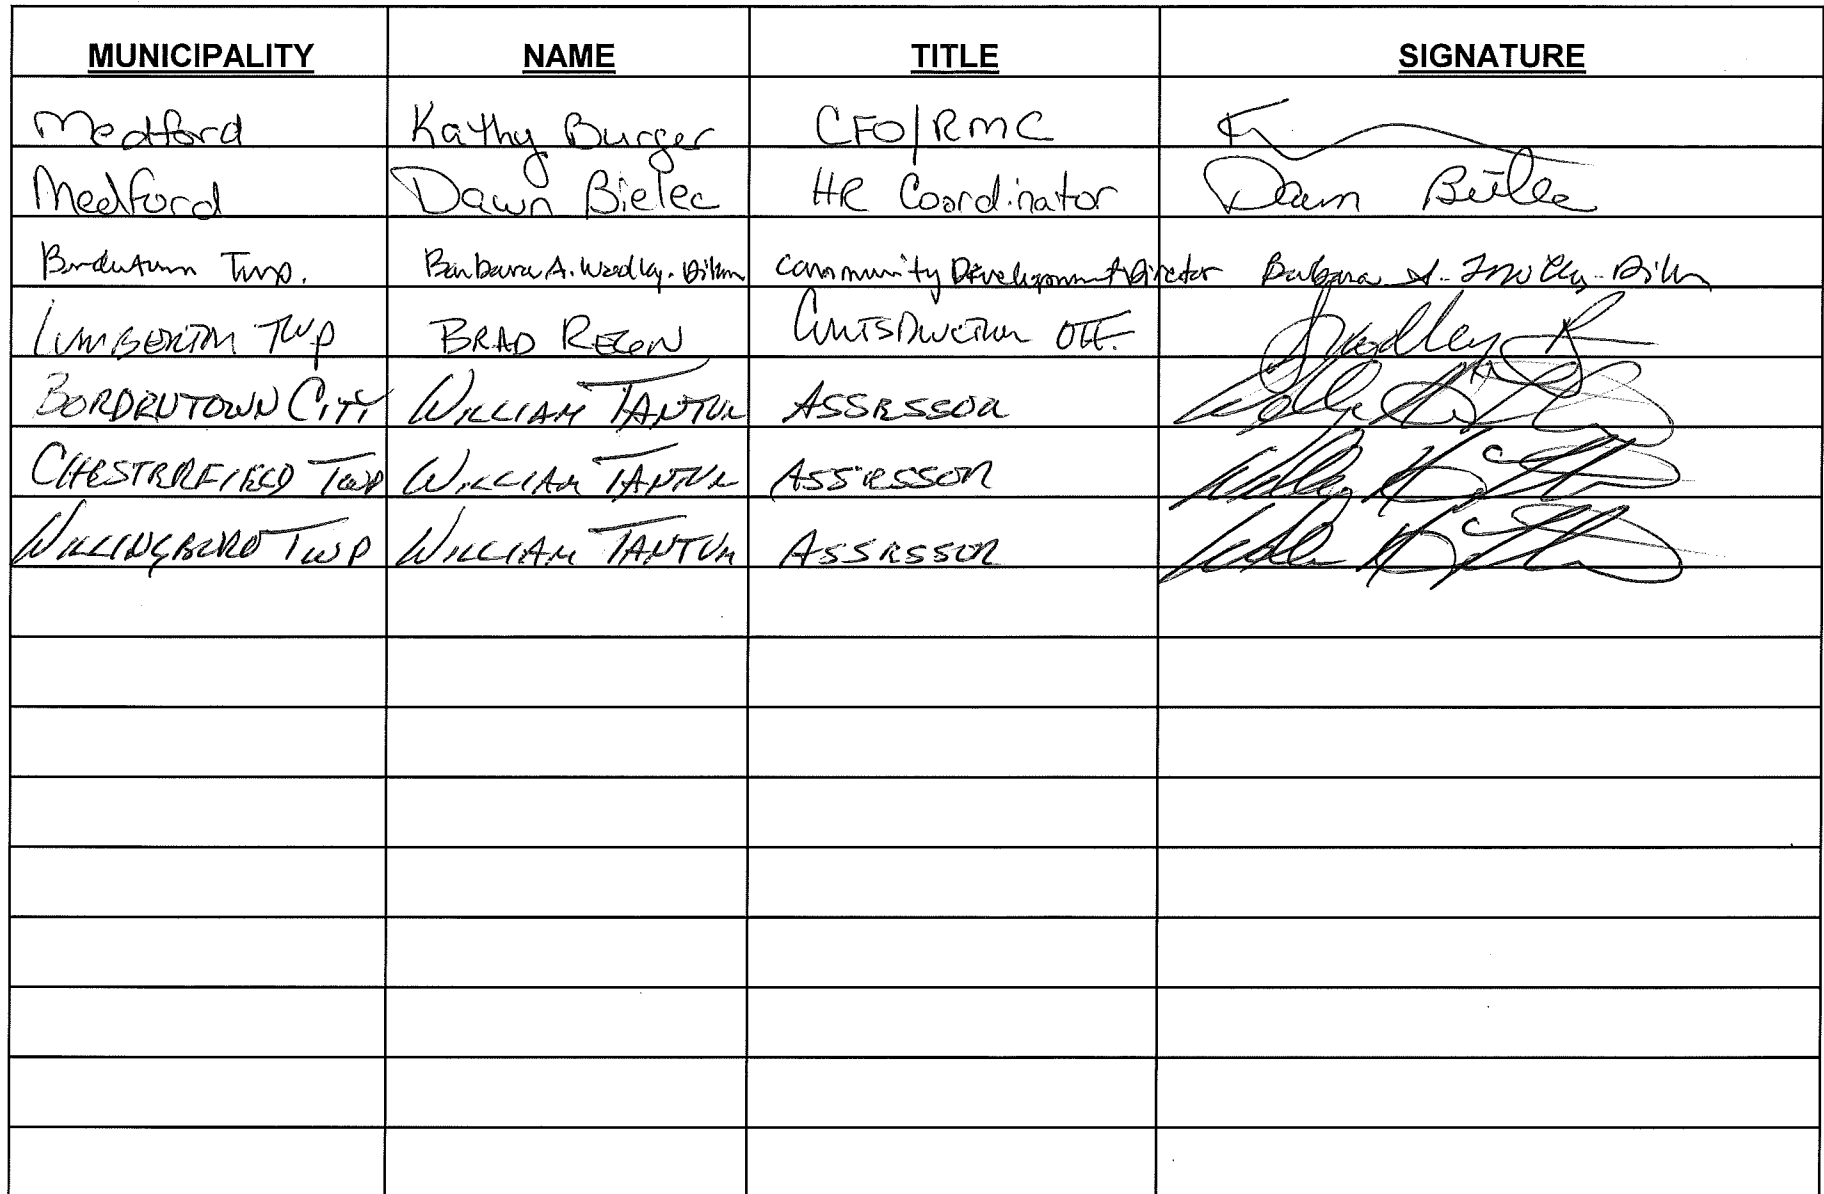 MUNICIPALITY NAME TITLE SIGNATURE
Medford Kathy Burger CFO/RMC
Medford Dawn Bielec HR Coordinator Dawn Bielec
Bordentown Twp. Barbara A. Woolley-Dillon Community Development Director Barbara A. Woolley-Dillon
LUMBERTON TWP BRAD REGN CONSTRUCTION OFF. Bradley R
BORDENTOWN CITY WILLIAM TANTUM ASSESSOR
CHESTERFIELD TWP WILLIAM TANTUM ASSESSOR
WILLINGBORO TWP WILLIAM TANTUM ASSESSOR